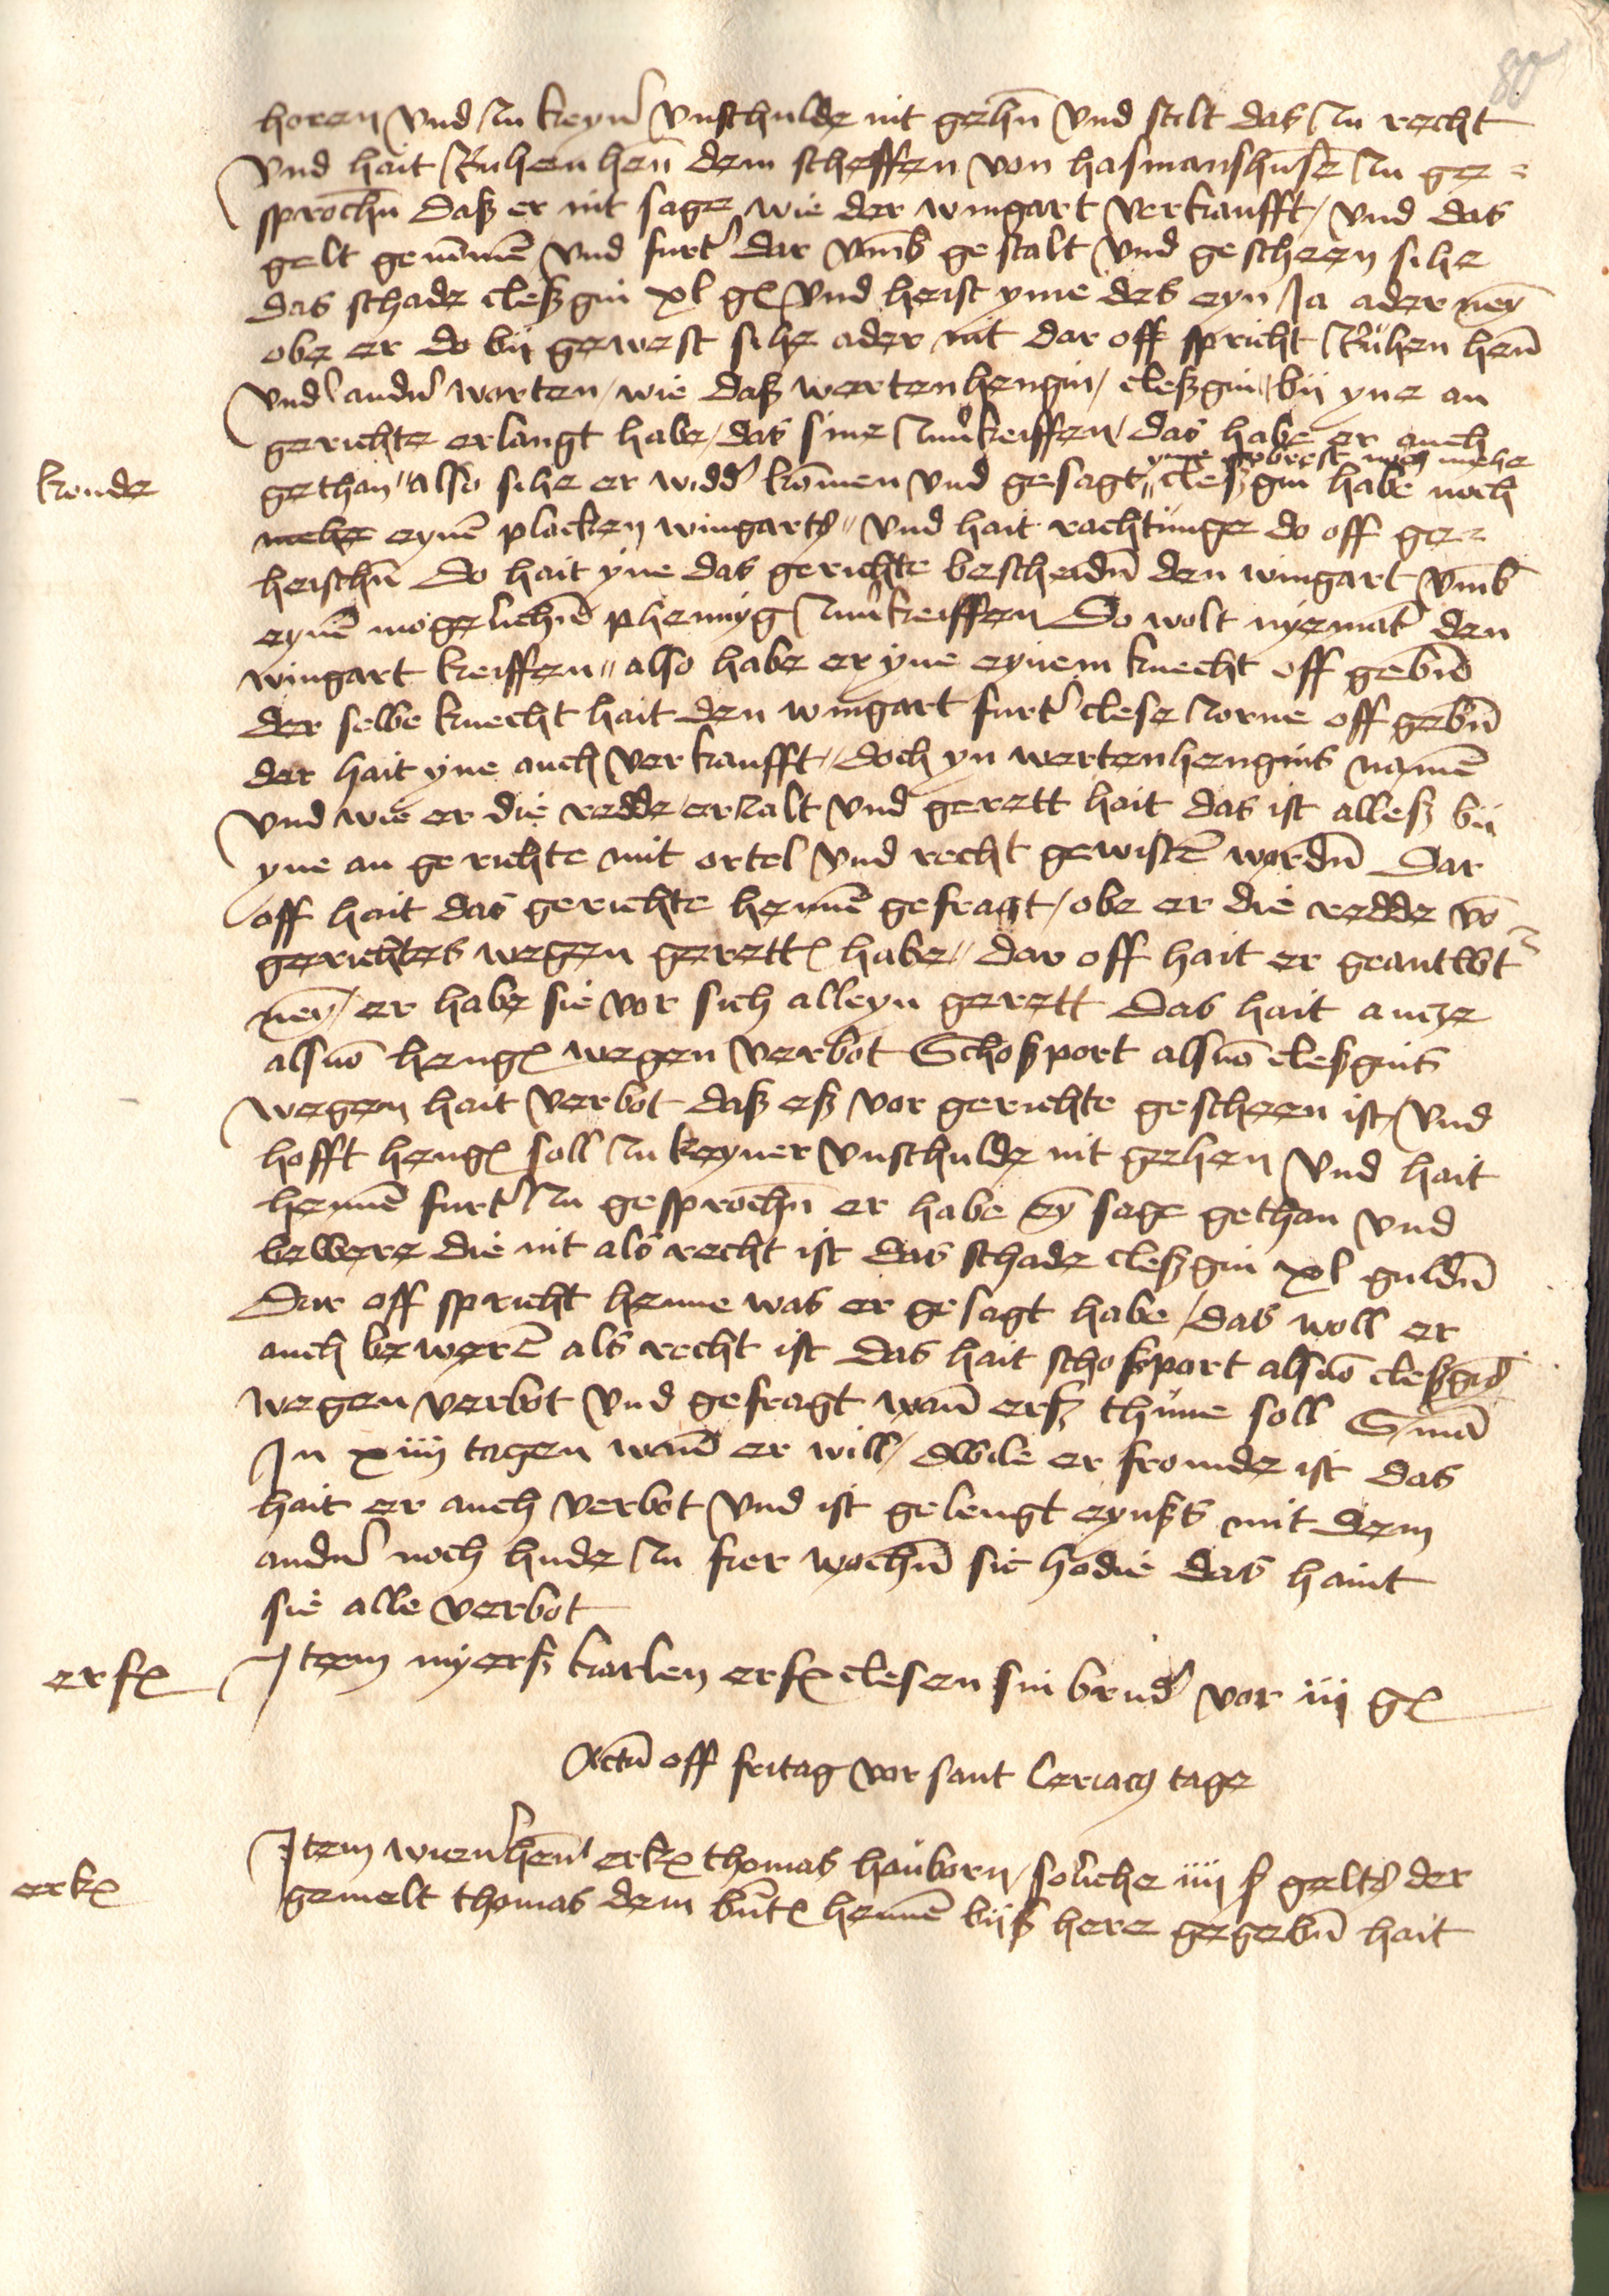 80
horen und zu keyner unschulde nit gehn und stilt das zu recht
und hait Ruhen henn dem scheffen von hasmanshuse zu ge=
sprochn daß er nit sage wie der wingart verkaufft / und das
gelt genummen und furter dar umb gestalt und gescheen sihe
das schade cleßgin xl gl und heist yme des eyn Ja ader ney
obe er do bij gewest sihe ader nit dar off spricht Ruhen henn
under andern worten / wie daß wertenhengin / cleßgin / bij yne an
gerichte erlangt habe / das sine zuverkeiffen / das habe er auch
konde
yme gebrest noch mehe
gethan // also sihe er widder kommen und gesagt // cleßgin habe noch
mehe eynen placken wingarts // und hait rachtunge do off ge=
heischn Do hait yne das gerichte bescheidn den wingart umb
eynen mogelichen phennyg zuverkeiffen Do wolt nyemant den
wingart keiffen // also habe er yne eynem knecht off gebn
der selbe knecht hait den wingart furter clese zorne off gebn
der hait yne auch verkaufft / doch yn wertenhengins namen
und wie er die redde erzalt und gerett hait das ist alleß bij
yne an gerichte mit ortel und recht gewisten wordn Dar
off hait das gerichte hennen gefragt / obe er die redde von
gerichtes wegen gerett habe // dar off hait er geantwt
ney / er habe sie vor sich alleyn gerett Das hait ancze
alsuo hengl wegen verbot Schoßport alsuo cleßgins
wegen hait verbot daß eß vor gerichte gescheen ist / und
hofft hengl soll zu keyner unschulde nit gehen und hait
hennen furter zu gesprochn er habe ey sage gethan und
bewere die nit als recht ist das schade cleßgin xl guldn
Dar off spricht henne was er gesagt habe / das woll er
auch beweren als recht ist das hait schoßport alsuo cleßgins
wegen verbot und gefragt wann erß thune soll S / man
In xiiij tagen wann er will / dwile er fromde ist das
hait er auch verbot und ist gelengt eynßts mit dem
ander noch hude zu fier wochn sic hodie das haint
sie alle verbot
erfx
Item myerß karlen erfx clesen sin bruder vor iij gl
Actum off fritag vor sant Ceriacy tage
erkx
Item wienrhenn erkx thomas hauborn / soliche iiij ß gelts der
gemelt thomas dem bntx hennen bijß here gegebn hait